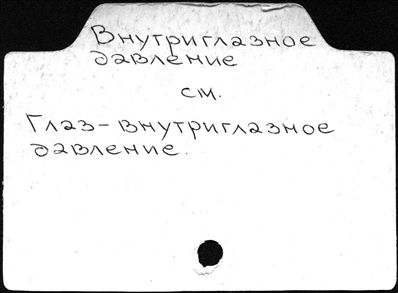 Внутриглазное
давление
см.
Глаз-внутриглазное
давление.